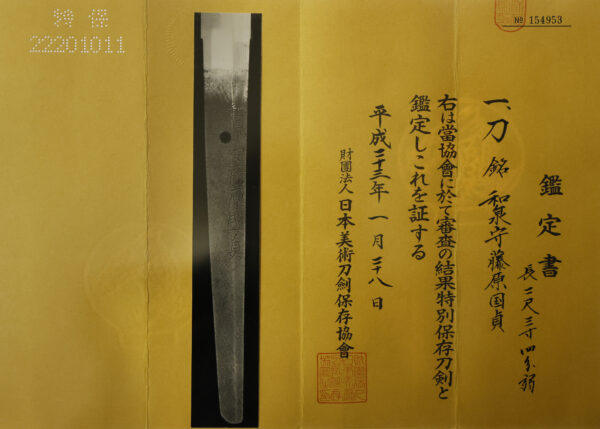 特保
22201011
№ 154953
鑑定書
一、刀 銘 和泉守藤原国貞
長二尺三寸四分弱
右は當協會に於て審査の結果特別保存刀剣と
鑑定しこれを証する
平成二十三年一月二十八日
財團法人日本美術刀劍保存協會